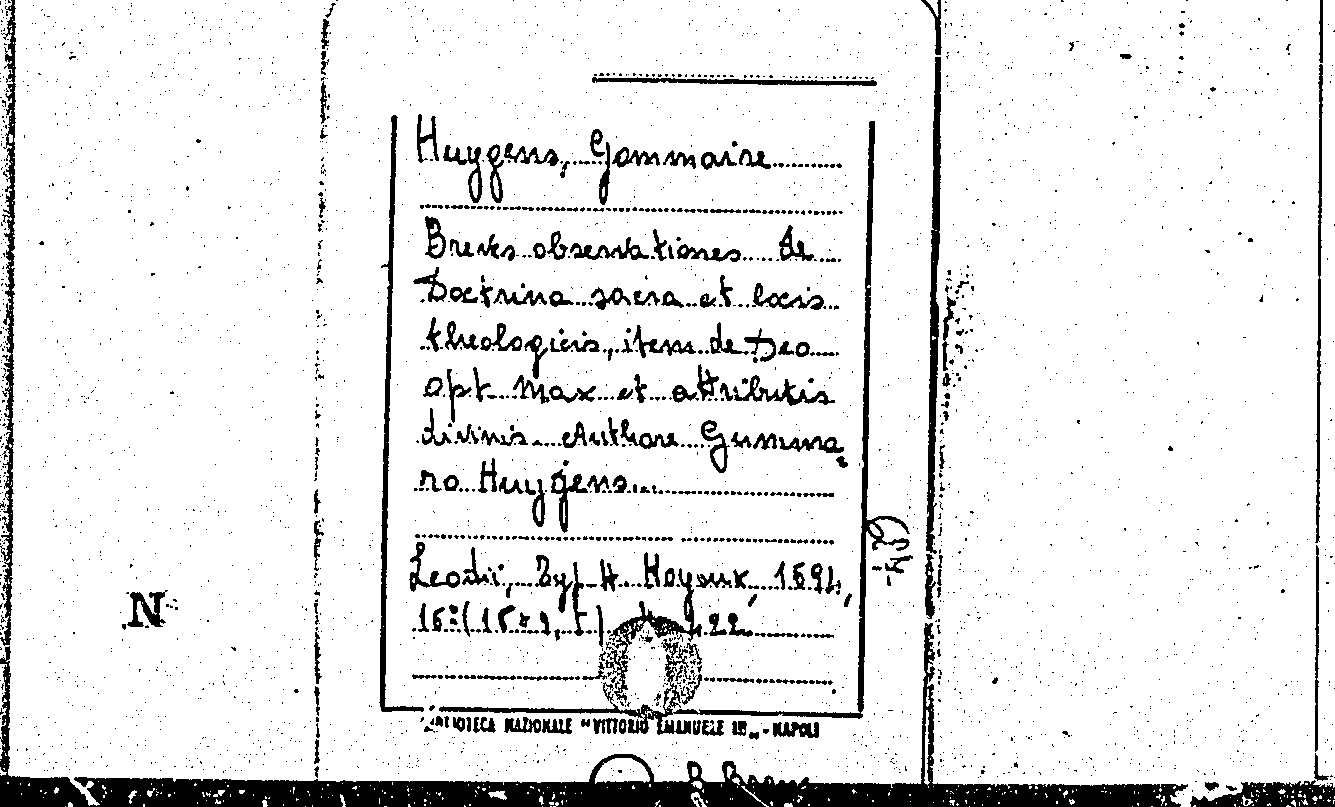 Huygens, Gommaire
Breves observationes de
Doctrina sacra et locis
theologicis, item de Deo
opt. Max et attributis
divinis. Authore Gumma
ro Huygens...
Leodii, Typ. H. Hoyoux, 1694,
N
BIBLIOTECA NAZIONALE "VITTORIO EMANUELE III" - NAPOLI
B. Branc